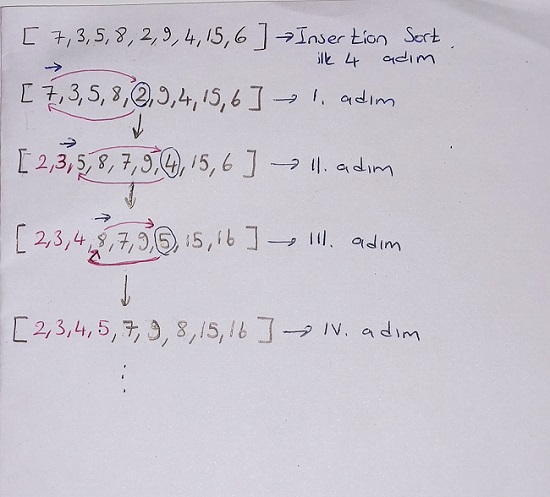 [ 7,3,5,8,2,9,4,15,6 ] → Insertion Sort
ilk 4 adım
[ 7,3,5,8,2,9,4,15,6 ] → I. adım
[ 2,3,5,8,7,9,4,15,6 ] → II. adım
[ 2,3,4,8,7,9,5,15,16 ] → III. adım
[ 2,3,4,5,7,9,8,15,16 ] → IV. adım